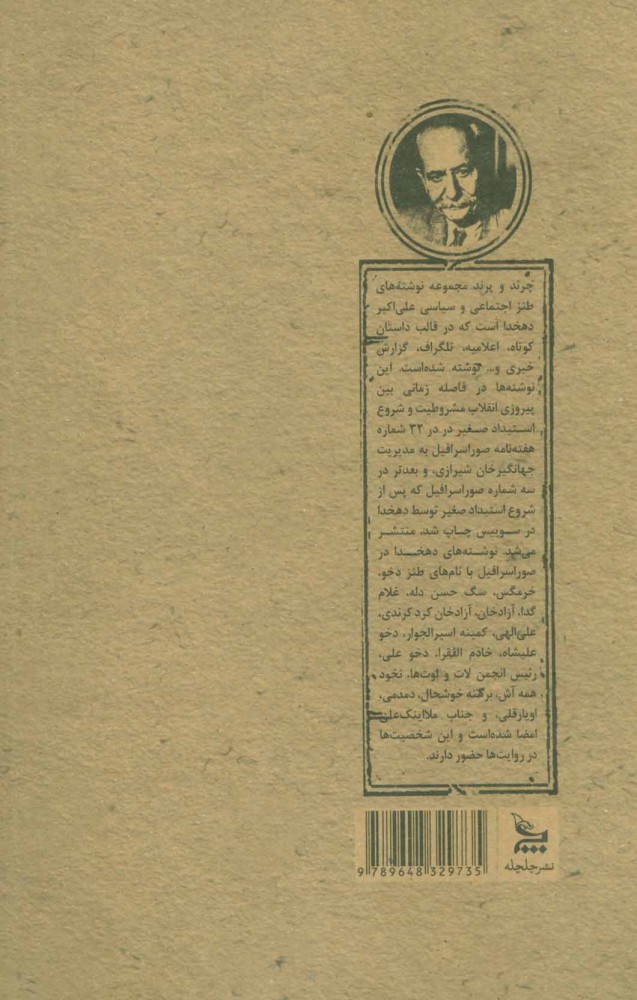 چرند و پرند مجموعه نوشته‌های
طنز اجتماعی و سیاسی علی‌اکبر
دهخدا است که در قالب داستان
کوتاه، اعلامیه، تلگراف، گزارش
خبری و... نوشته شده‌است. این
نوشته‌ها در فاصله زمانی بین
پیروزی انقلاب مشروطیت و شروع
استبداد صغیر در در ۳۲ شماره
هفته‌نامه صوراسرافیل به مدیریت
جهانگیرخان شیرازی، و بعدتر در
سه شماره صوراسرافیل که پس از
شروع استبداد صغیر توسط دهخدا
در سوییس چاپ شد، منتشر
می‌شد. نوشته‌های دهخدا در
صوراسرافیل با نام‌های طنز دخو،
خرمگس، سگ حسن دله، غلام
گدا، آزادخان، آزادخان کرد کرندی،
علی‌الهی، کمینه اسیرالجوار، دخو
علیشاه، خادم الفقرا، دخو علی،
رئیس انجمن لات و لوت‌ها، نخود
همه آش، برهنه خوشحال، دمدمی،
اویارقلی، و جناب ملااینک‌علی
امضا شده‌است و این شخصیت‌ها
در روایت‌ها حضور دارند.
9 789648 329735
نشر چلچله